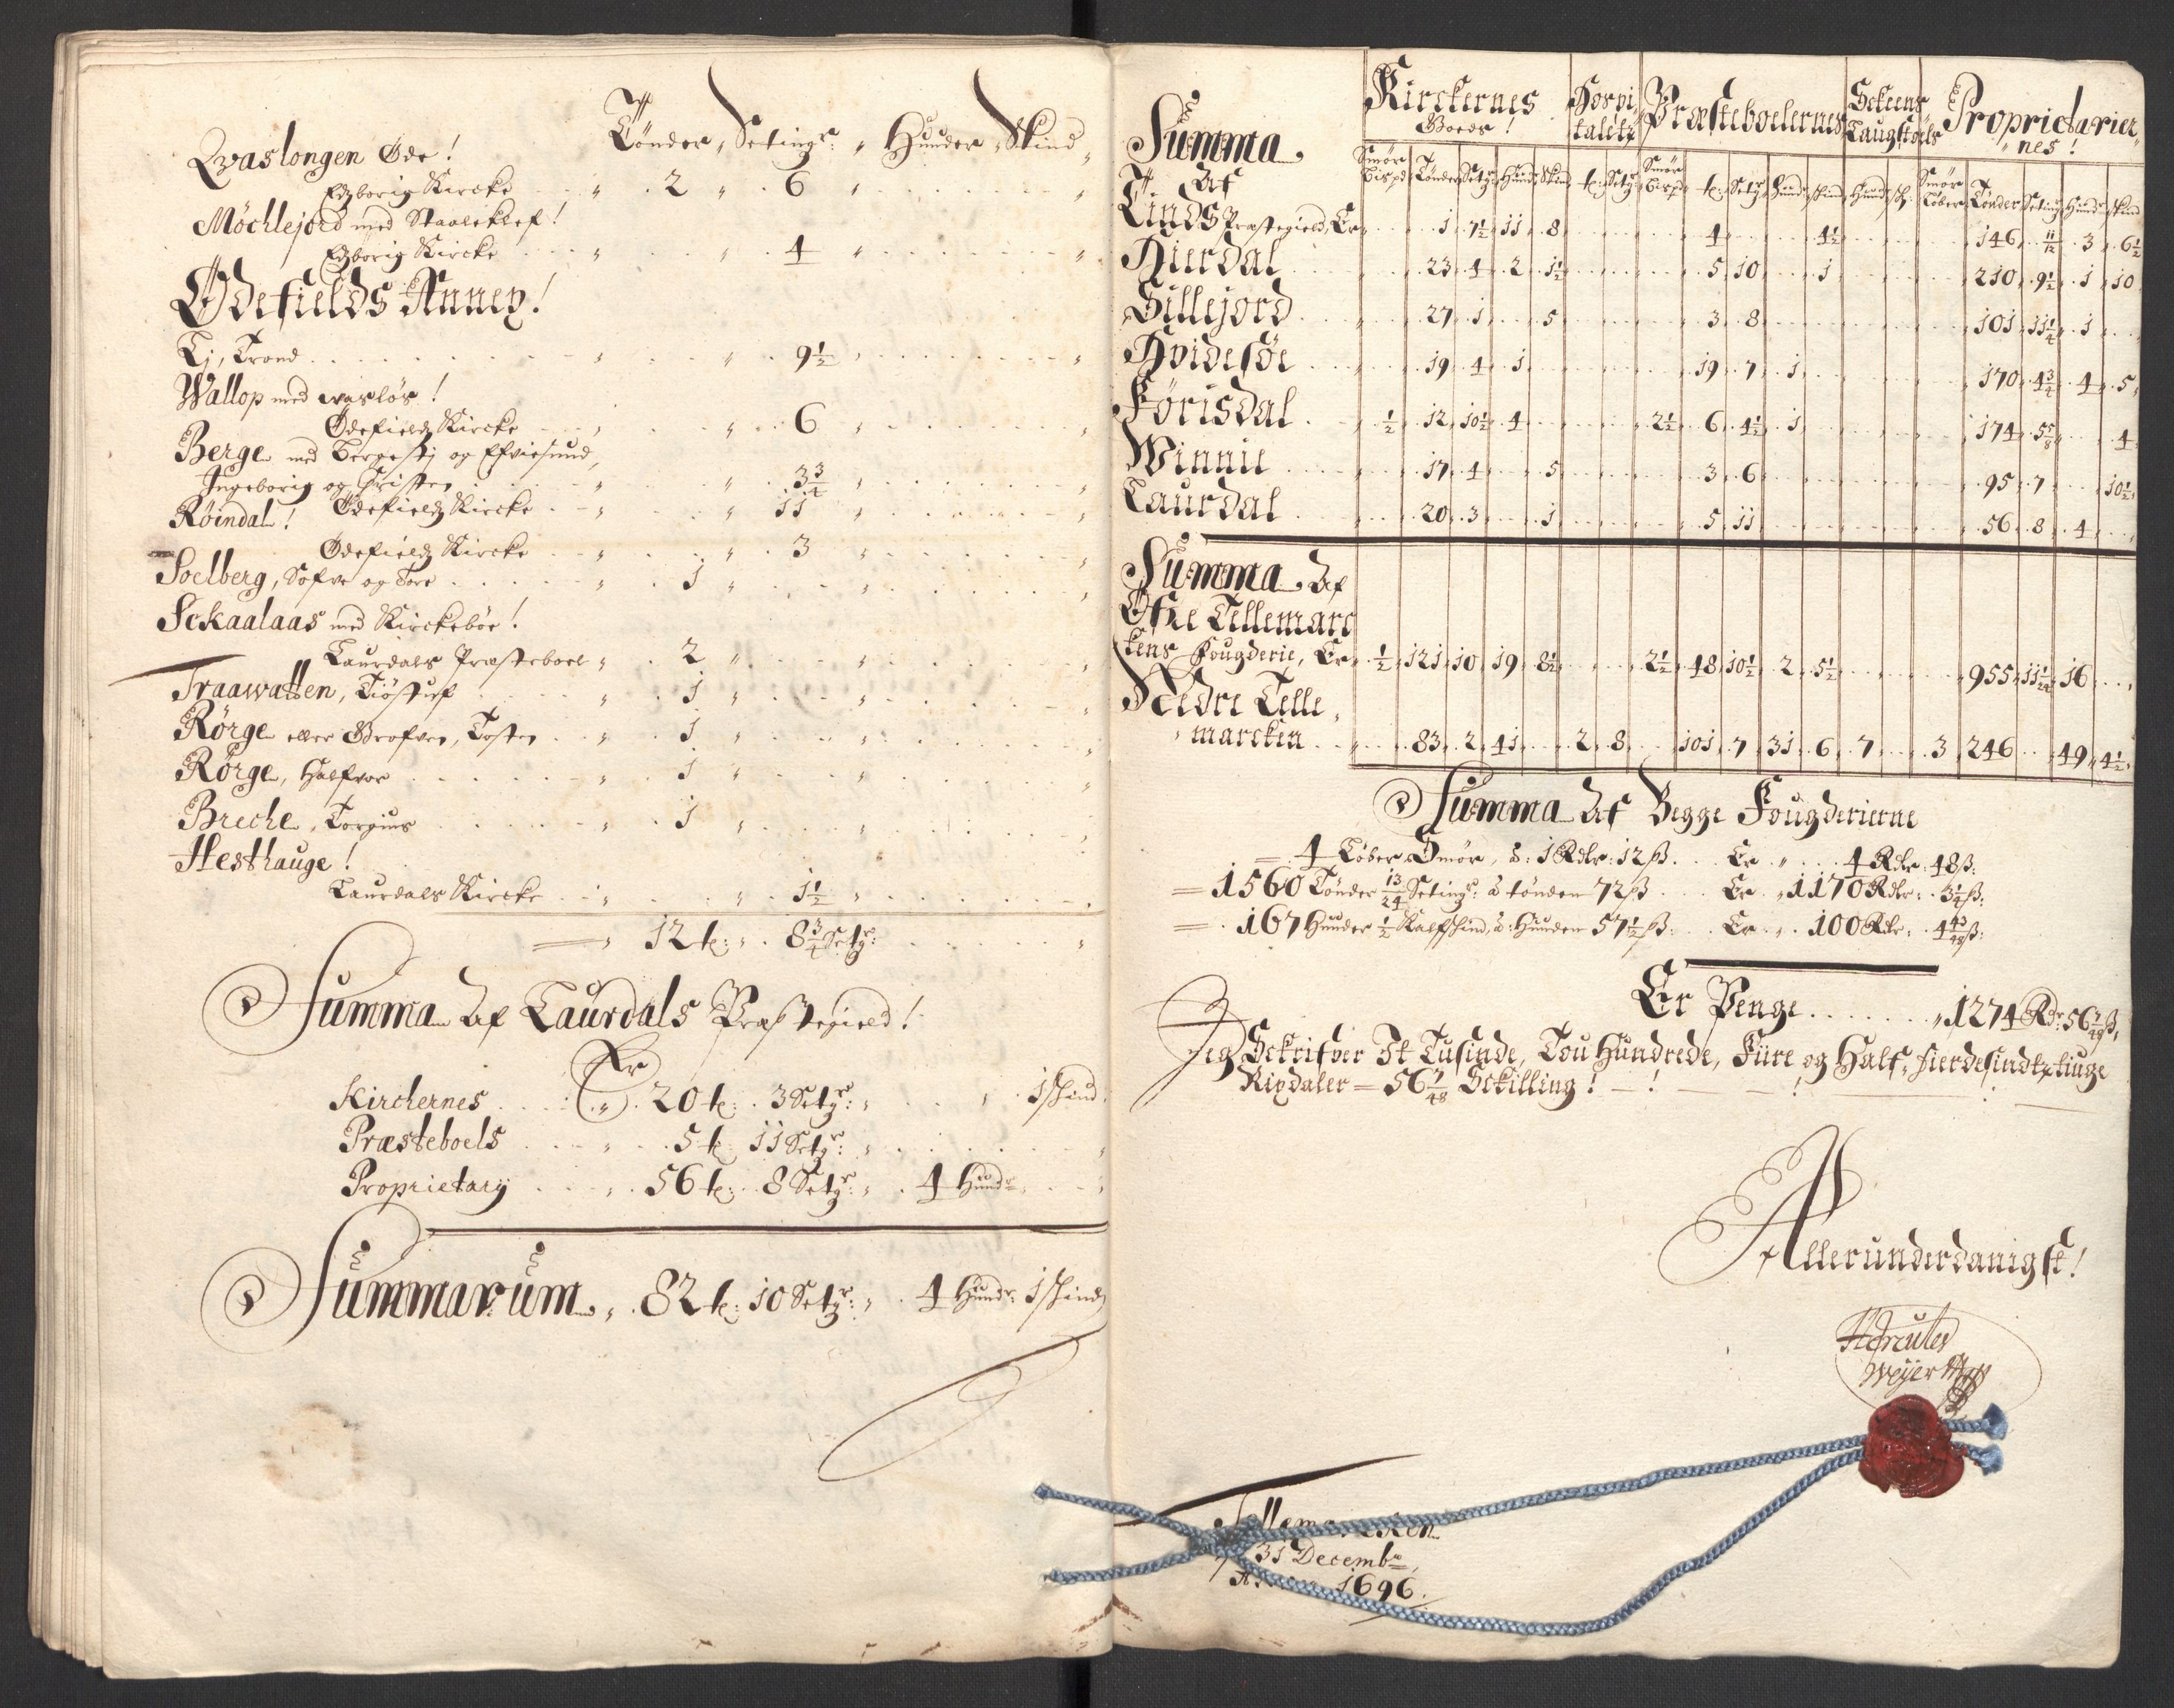 Tønder, Setingr: „ Hunder, Skind
Qvaslongen Øde!
Edzborig Kircke „ 2 „ 6 „
Möchlejord med Staaleklef!
Edzborig Kircke „ „ 4 „
Ödefields Annex!
Ej, Trond „ „ 9½ „
Wallop med
Ödefieldz Kircke „ „ 6 „
Berge med Bergestj og Efviesund,
Ingeborig og Christen „ „ 3¾ „
Ödefieldz Kircke „ „ 11 „
Röindal!
Ödefieldz Kircke „ „ 3 „
Soelberg, Sofve og Tore „ 1 „
Sckaalaas med Kirckebøe!
Laurdals Præsteboel „ 2 „
Traawatten, Tiöstuf „ 1 „
Rørge eller Grofven, Tosten „ 1 „
Rørge, Halfvor „ 1 „
Breche, Torgius „ 1 „
Hesthauge!
Laurdals Kircke „ „ 1½ „
= „ 12 t: „ 8¾ Setgr:
Summa Af Laurdals Præstegield!
Er
Kirchernes „ 20 t: 3 Setgr: „ 1 skind
Præsteboels „ 5 t: 11 Setgr: „
Proprietary „ 56 t: 8 Setgr: „ 4 Hundr
Summarum „ 82 t: 10 Setgr: „ 4 Hundr: 1 skind
Summa Af
Kirckernes Goeds!
Hospitaletz
Præsteboelernes
Sckeens Laugstoels
Proprietariernes!
Smør Bispd Tønder Setgr Hund: Skind t: Setgr Smør Bispd t: Setgr Hund: skind Hund: sk: Smør Løber Tønder Seting Hundr skind
Tinds Præstegield, Er 1 7½ 11 8 4 4½ 146 11/12 3 6½
Hierdal 23 4 2 1½ 5 10 1 210 9½ 1 10
Sillejord 27 1 5 3 8 101 11¼ 1
Hvidesøe 19 4 1 19 7 1 170 4¾ 4 5
Førisdal ½ 12 10½ 4 2½ 6 4½ 1 174 5⅝ 4
Winnie 17 4 5 3 6 95 7 10½
Laurdal 20 3 1 5 11 56 8 4
Summa Af
Öfre Tellemarc
kens Fougderie, Er ½ 121 10 19 8½ 2½ 48 10½ 2 5½ 955 11 1/24 16
Nedre Telle
marcken 83 2 41 2 8 101 7 31 6 7 3 246 49 4½
Summa Af Begge Fougderierne
= 4 Løber Smør, à: 1 Rdlr: 12 ß Er „ 4 Rdr 48 ß:
= 1560 Tønder 13/24 Setingr: à tønden 72 ß Er „ 1170 Rdlr: 3¼ ß:
= 167 Hunder ½ Kalfskind, à: Hunden 57½ ß: Er „ 100 Rdr: 4 43/48 ß:
Er Penge „ 1274 Rdr: 56 7/48 ß,
Jeg Sckrifver Et Tusinde, Tou Hundrede, Fiire og Half-fierdesindtztiuge
Rixdaler = 56 7/48 Sckilling!
Allerunderdanigst!
Hercules
Weyer
31 Decembr
1696.